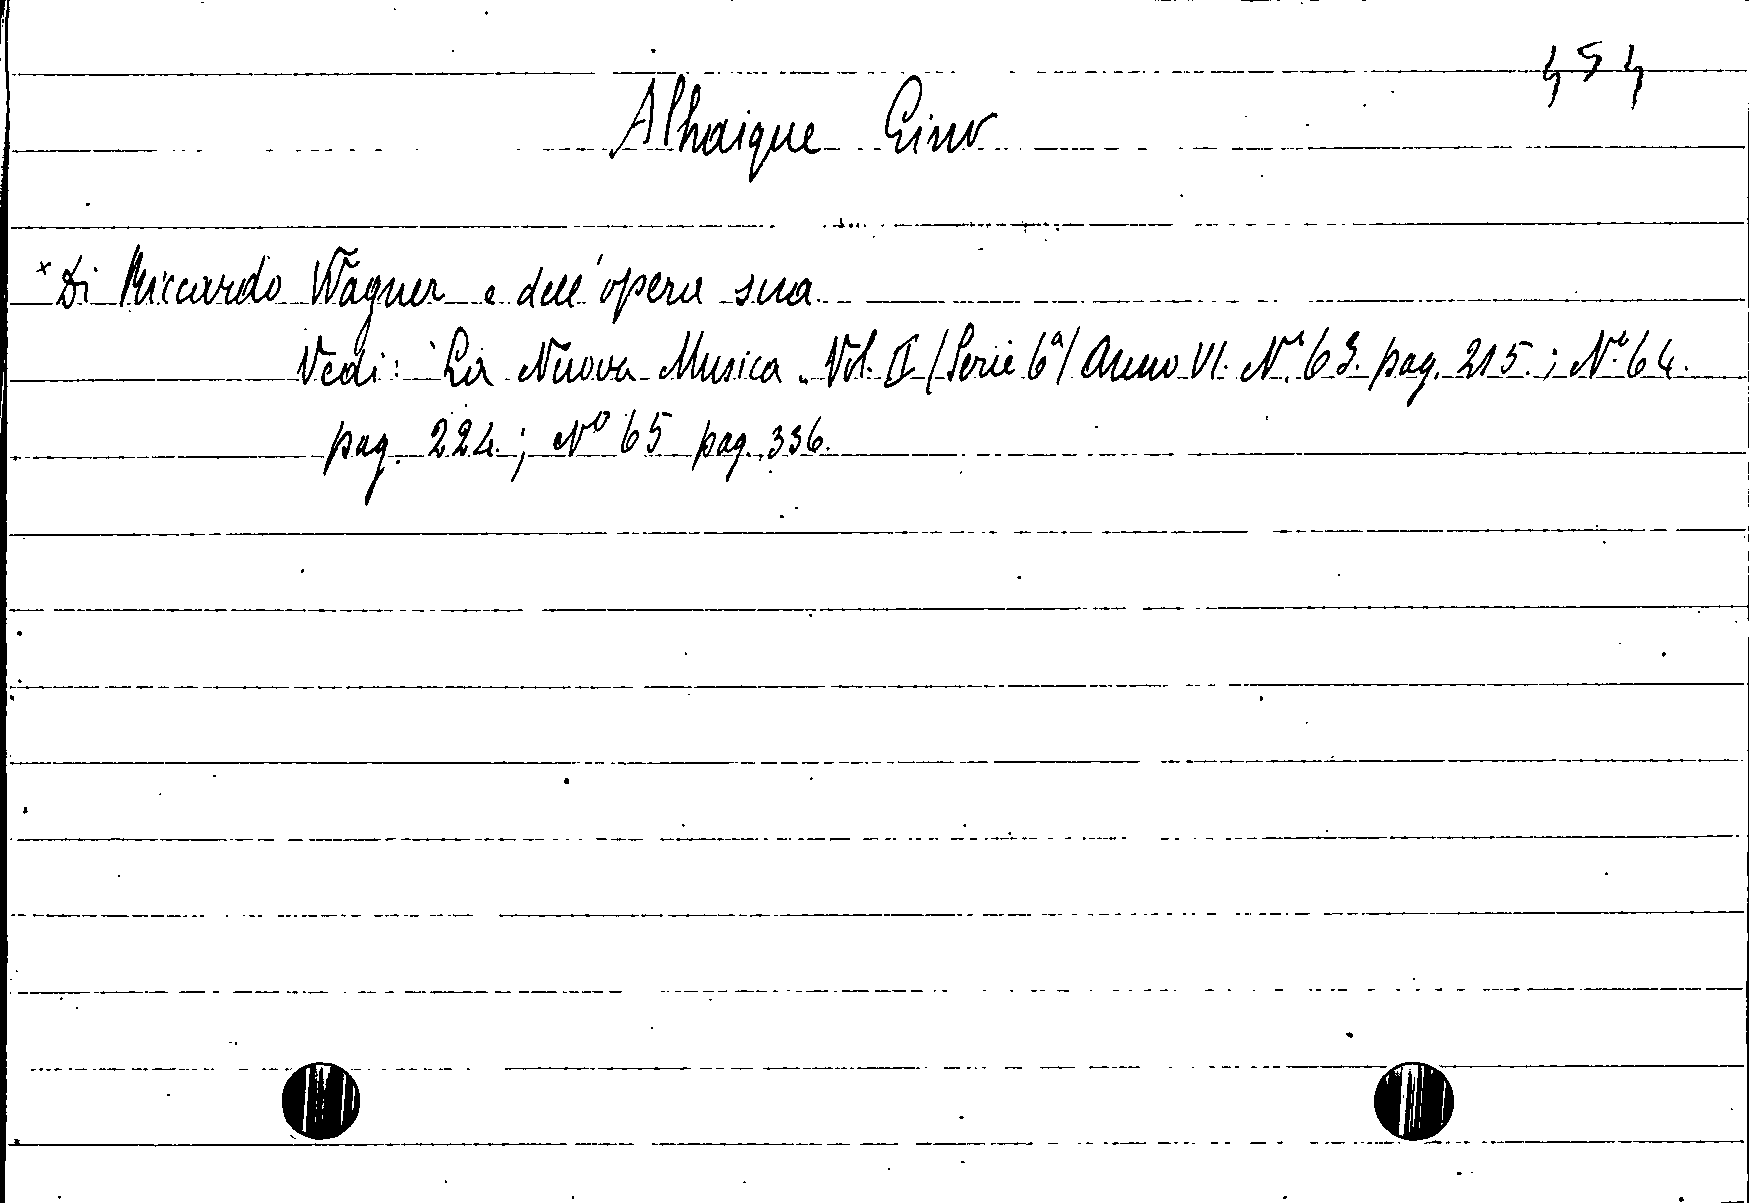 454
Alhaique Gino
*Di Riccardo Wagner e dell'opera sua
Vedi: La Nuova Musica. Vol. II (Serie 6ª) Anno VI. Nº 63. pag. 215.; Nº 64.
pag. 224.; Nº 65 pag. 336.